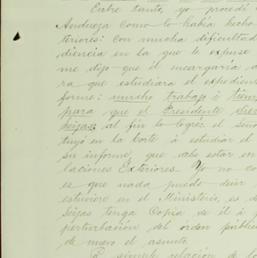 Entre tanto, yo procedí
Andueza como lo había hecho
teriores: Con mucha dificultad
diencia en la que le expuse
me dijo que él encargaría a
ra que estudiara el expediente
forme: mucho trabajo i tiem
para que el Presidente
Seijas al fin lo logré el
tuyo en la Corte á estudiar el
su informe, que debe estar en
laciones Exteriores. Yo no co
es que nada puedo decir
estuviere en el Ministerio, es de
Seijas tenga Copia de él i
perturbación del orden públic
de nuevo el asunto.
La simple relación de lo